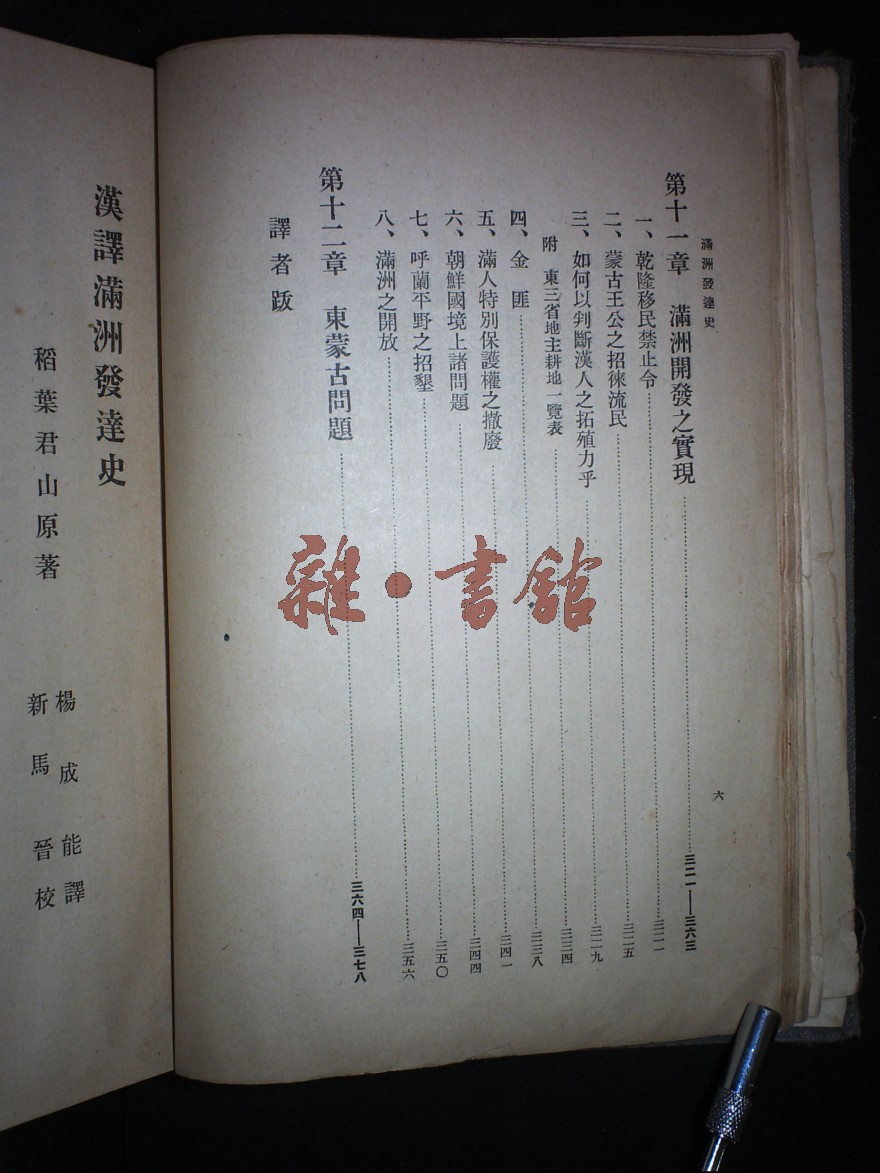 滿洲發達史
六
第十一章　滿洲開發之實現……三二一——三六三
一、乾隆移民禁止令……三二一
二、蒙古王公之招徠流民……三二五
三、如何以判斷漢人之拓殖力乎……三二九
附　東三省地主耕地一覽表……三三四
四、金匪……三三八
五、滿人特別保護權之撤廢……三四一
六、朝鮮國境上諸問題……三四四
七、呼蘭平野之招墾……三五〇
八、滿洲之開放……三五六
第十二章　東蒙古問題……三六四——三七八
譯者跋
漢譯滿洲發達史
稻葉君山原著
楊成能譯
新馬晉校
雜·書館